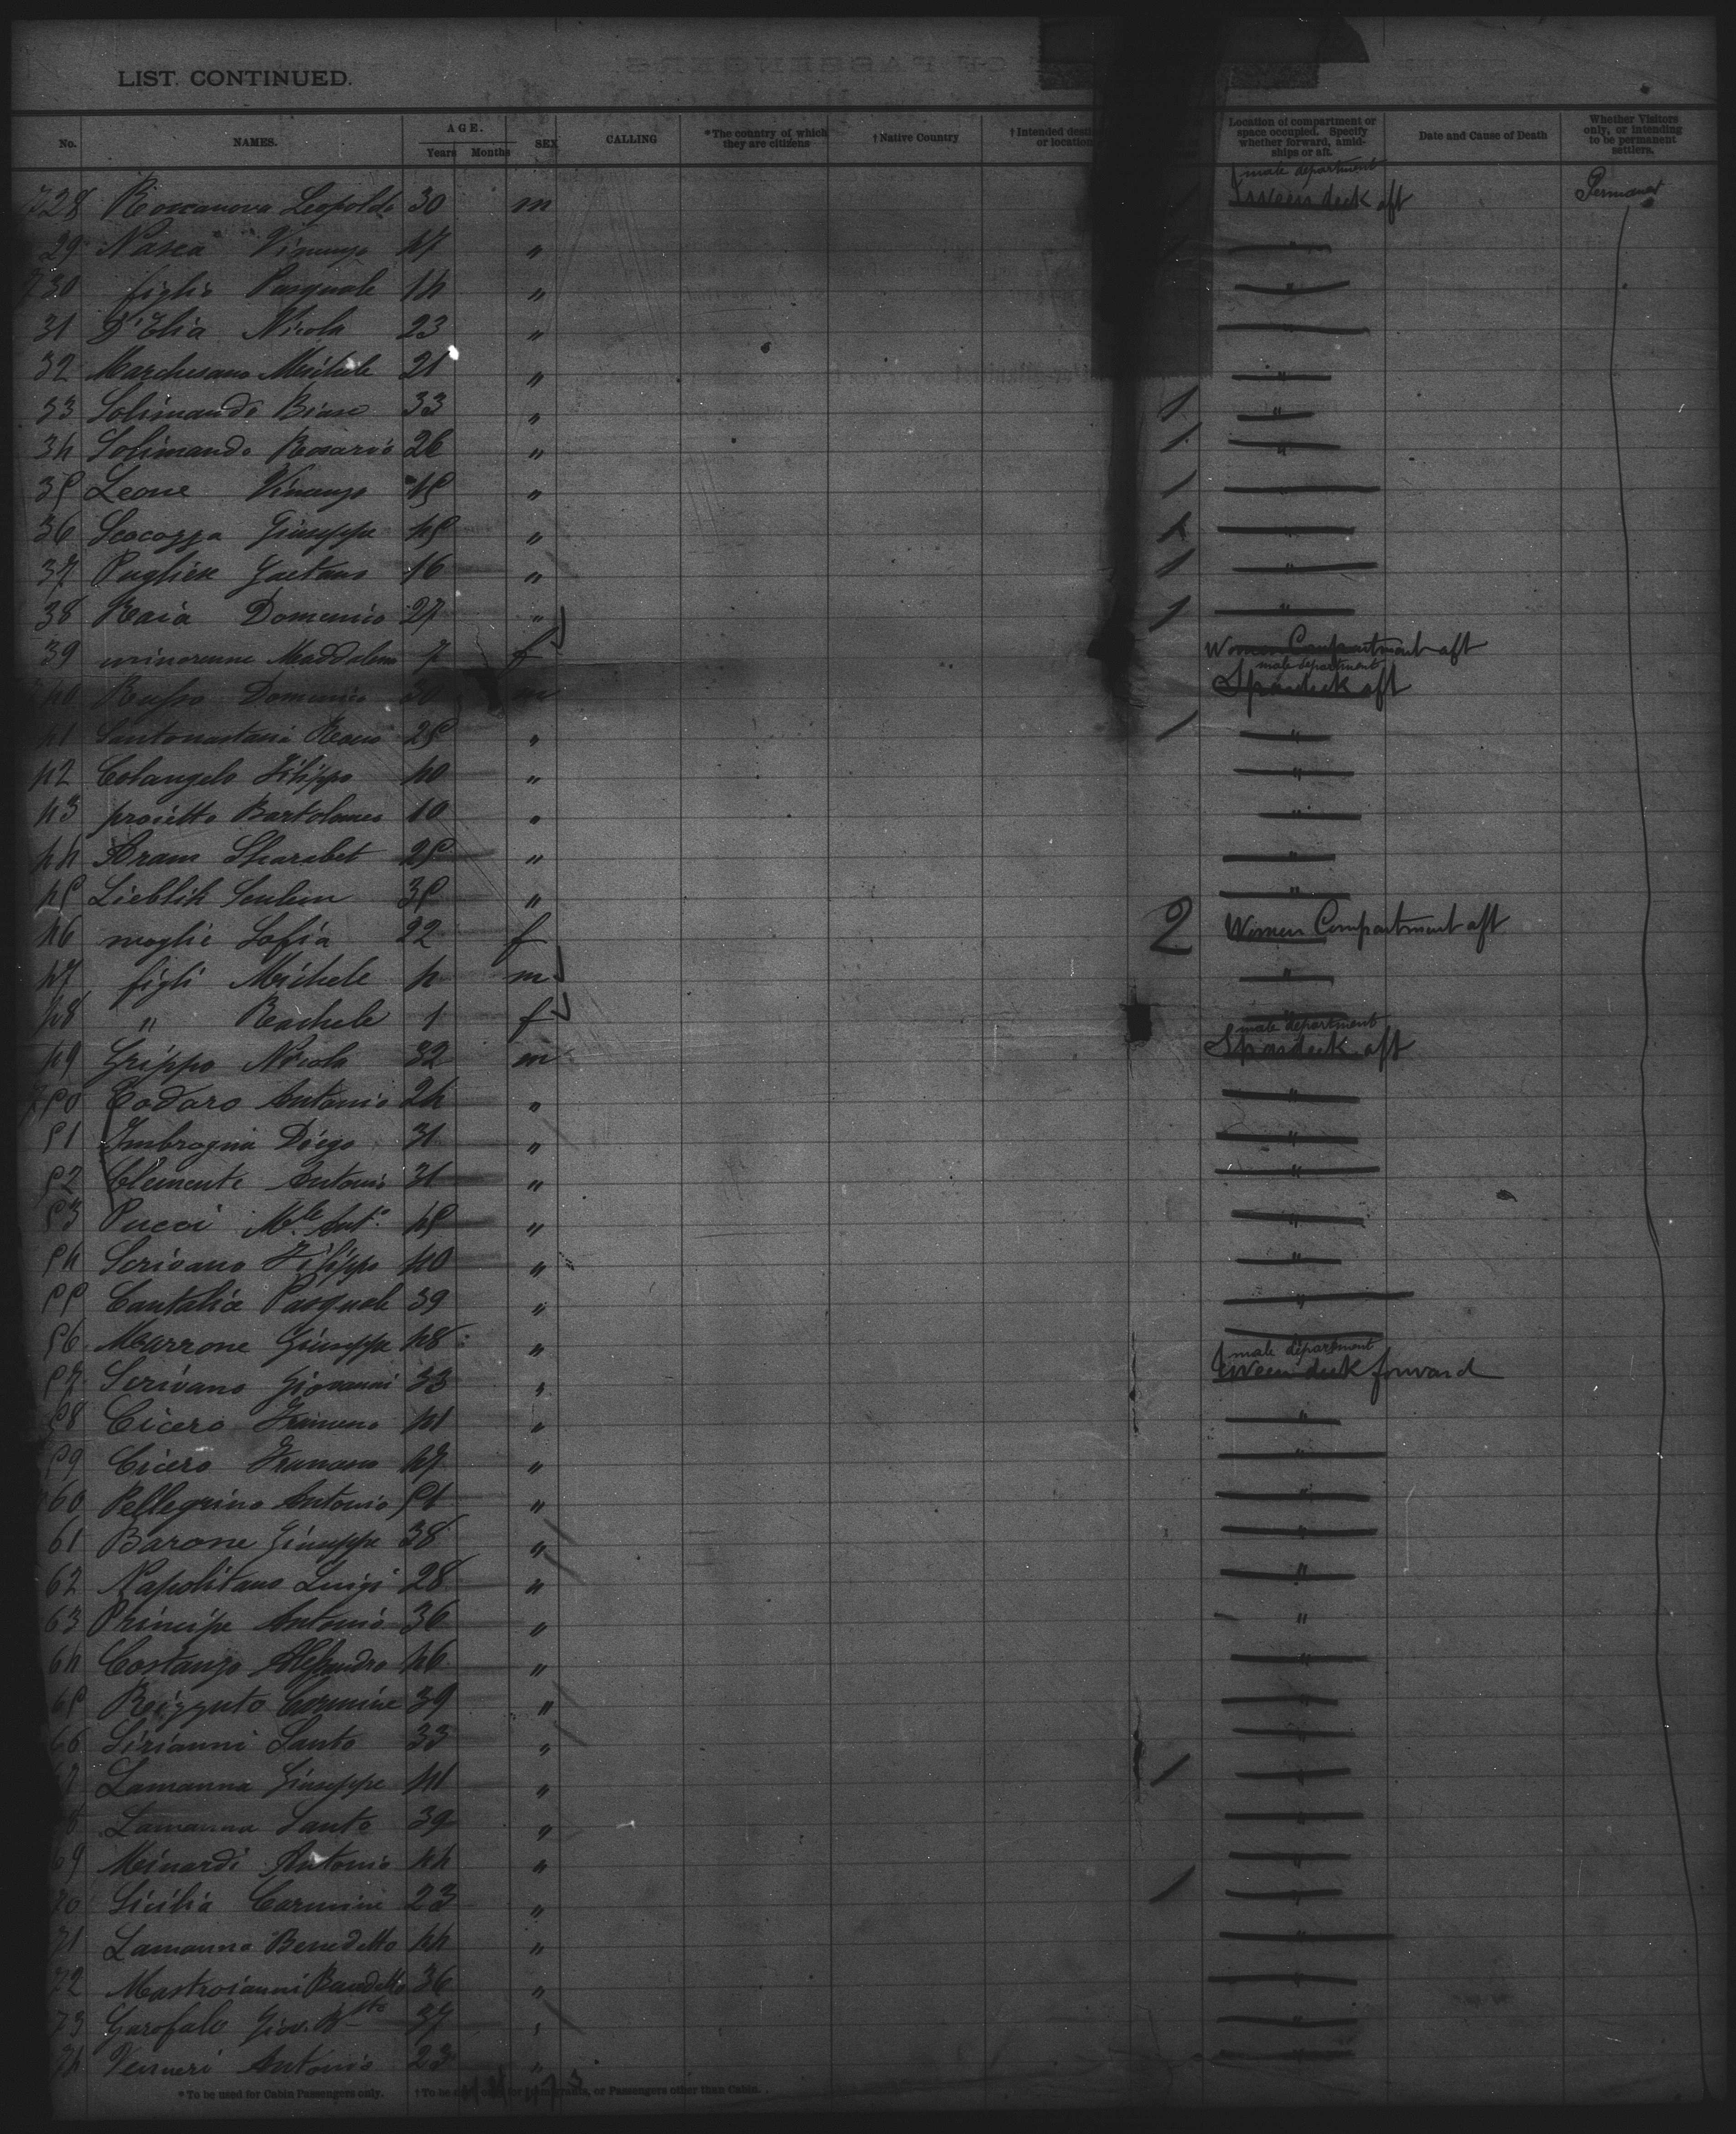 LIST. CONTINUED.
No. NAMES. AGE. Years Months SEX CALLING *The country of which they are citizens †Native Country †Intended or location Location of compartment or space occupied. Specify whether forward, amidships or aft. Date and Cause of Death Whether Visitors only, or intending to be permanent settlers.
male department
728 Leopoldo 30 m Tween deck aft Permanent
29 Nasca Vincenzo 47 " "
730 figlio Pasquale 14 " "
31 D'Elia Nicola 23 " "
32 Marchesano Michele 21 " "
33 Solimando Biase 33 " 1 "
34 Solimando Rosario 26 " 1 "
35 Leone Vincenzo 45 " 1 "
36 Scocozza Giuseppe 45 " 1 "
37 Pugliese Gaetano 16 " 1 "
38 Raia Domenico 27 " 1 "
39 Maddalena 7 f Women Compartment aft
male department
40 Russo Domenico 30 m Spardeck aft
41 Rocco 25 " 1 "
42 Colangelo Filippo 40 " "
43 proietto Bartolomeo 10 " "
44 Aram Sharabet 25 " "
45 Lieblik 35 " "
46 moglie Sofia 22 f 2 Women Compartment aft
47 figli Michele 4 m "
48 " Rachele 1 f "
male department
49 Grippo Nicola 32 m Spardeck aft
750 Codaro Antonio 24 " "
51 Imbrogna Diego 31 " "
52 Clemente Antonio 31 " "
53 Pucci Mle Anto 45 " "
54 Scrivano Filippo 40 " "
55 Cantalice Pasquale 39 " "
56 Marrone Giuseppe 48 "
male department
57 Scrivano Giovanni 33 " Tween deck forward
58 Cicero Francesco 41 " "
59 Cicero Francesco 47 " "
60 Pellegrino Antonio 51 " "
61 Barone Giuseppe 38 " "
62 Napolitano Luigi 28 " "
63 Principe Antonio 36 " "
64 Costanzo Alessandro 46 " "
65 Rizzuto Carmine 39 " "
66 Sirianni Santo 33 " "
67 Lamanna Giuseppe 41 " 1 "
68 Lamanna Santo 39 " "
69 Meinardi Antonio 44 " "
70 Sicilia Carmine 23 " 1 "
71 Lamanna Benedetto 44 " "
72 Mastroianni Benedetto 36 " "
73 Garofalo Giov. Btta 37 " "
74 Antonio 23 " "
*To be used for Cabin Passengers only. †To be used only for Immigrants, or Passengers other than Cabin.